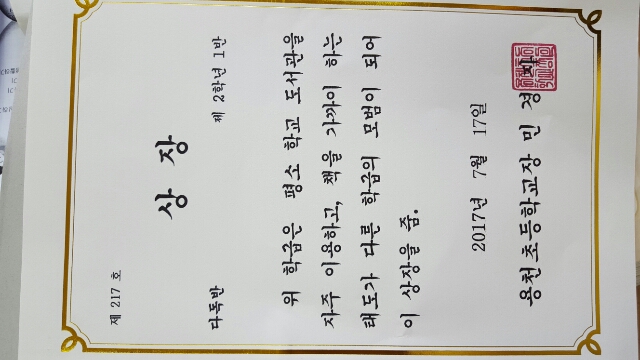 제 217 호
상 장
다독반
제 2학년 1반
위 학급은 평소 학교 도서관을
자주 이용하고, 책을 가까이 하는
태도가 다른 학급의 모범이 되어
이 상장을 줌.
2017년 7월 17일
용천초등학교장 민 경